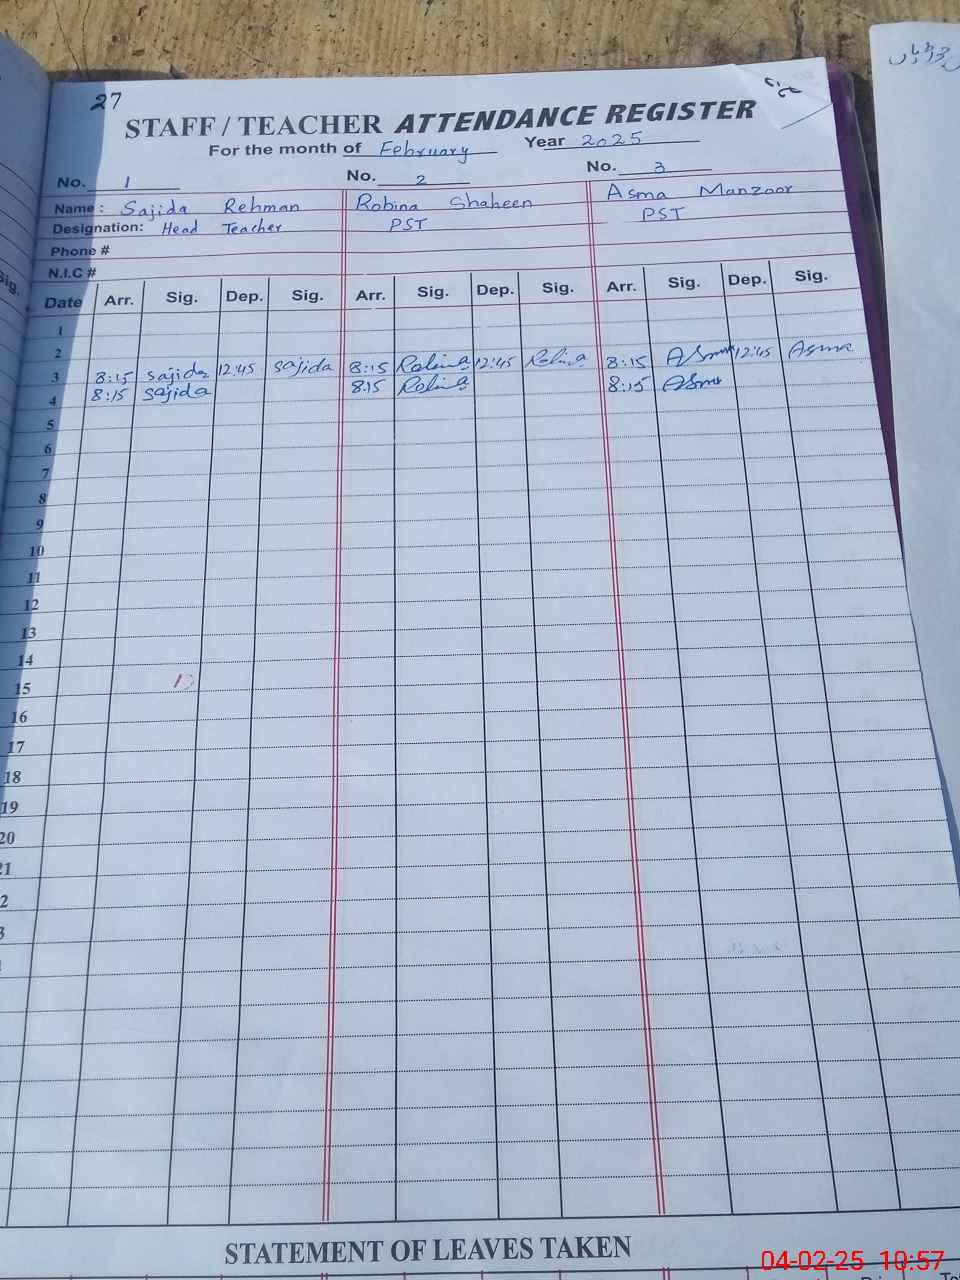 27
STAFF / TEACHER ATTENDANCE REGISTER
For the month of February Year 2025
No. 1 No. 2 No. 3
Name: Sajida Rehman Robina Shaheen Asma Manzoor
Designation: Head Teacher PST PST
Phone #
N.I.C #
Sig.
Date Arr. Sig. Dep. Sig. Arr. Sig. Dep. Sig. Arr. Sig. Dep. Sig.
1
2
3 8:15 Sajida 12:45 Sajida 8:15 Robina 12:45 Robina 8:15 Asma 12:45 Asma
4 8:15 Sajida 8:15 Robina 8:15 Asma
5
6
7
8
9
10
11
12
13
14
15
16
17
18
19
20
21
2
3
STATEMENT OF LEAVES TAKEN
04-02-25 10:57